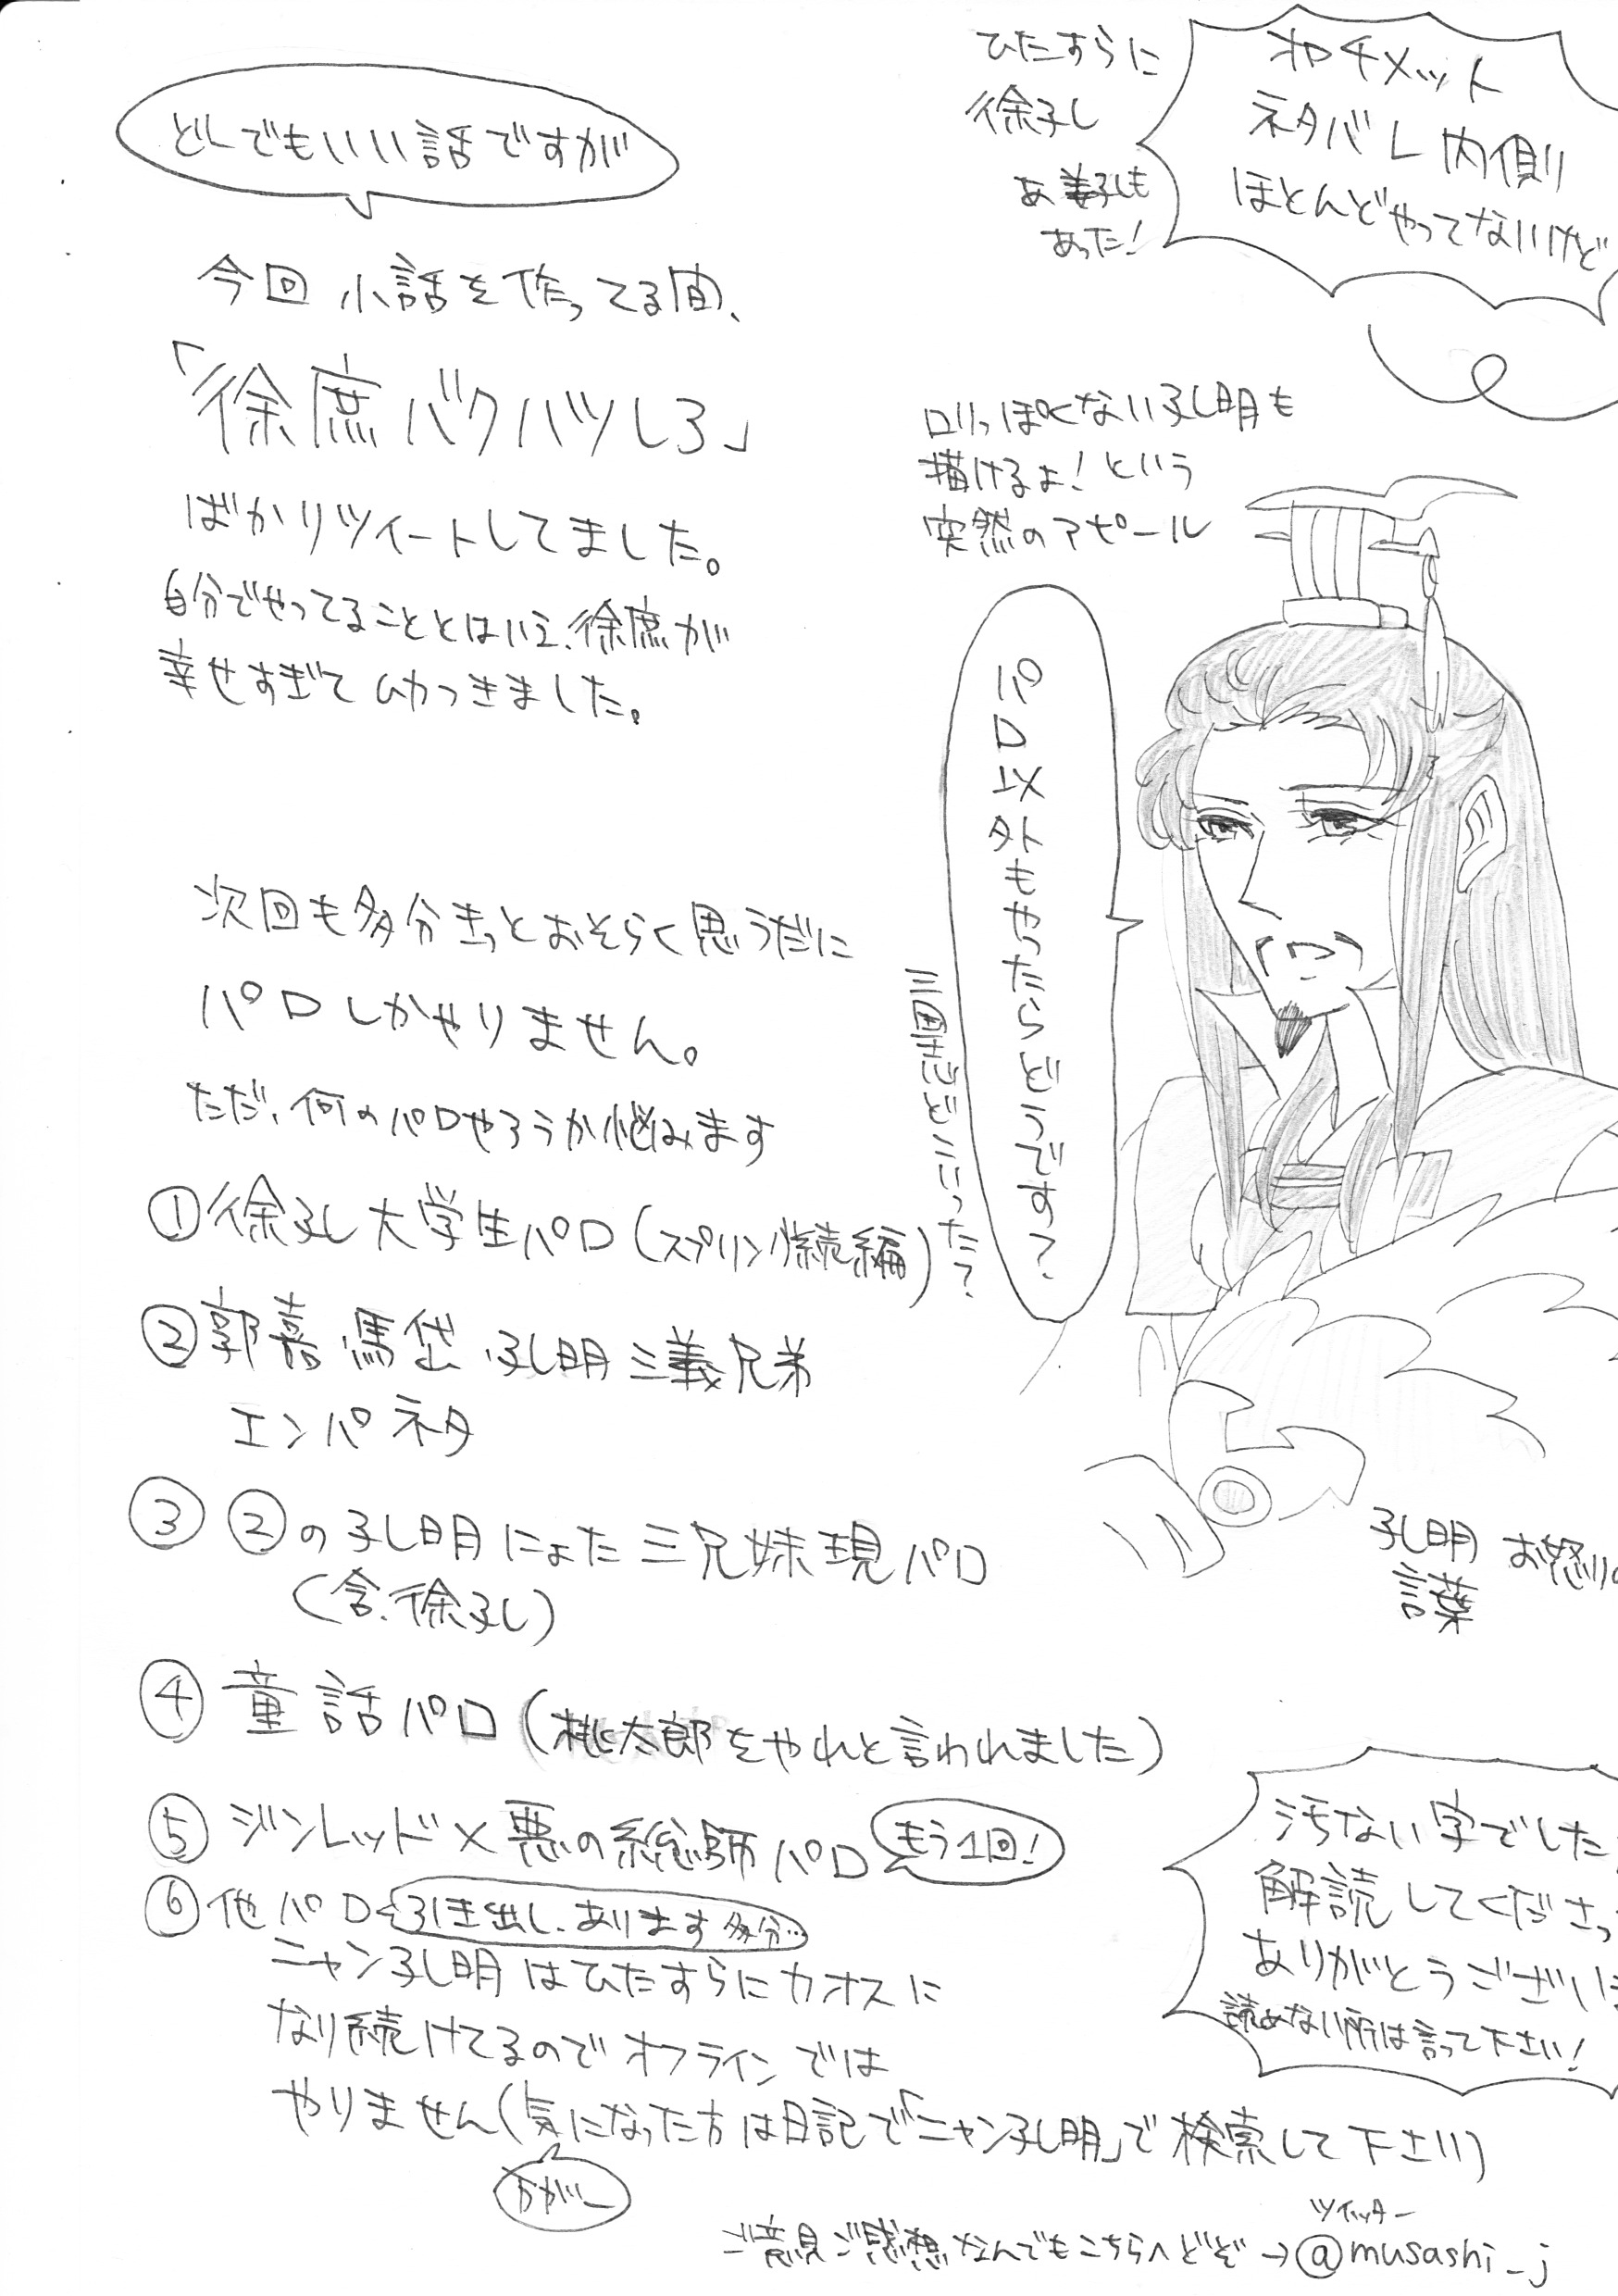 どーでもいい話ですが
今回小話を作ってる間、
「徐庶バクハツしろ」
ばかりツイートしてました。
自分でやってることとはいえ、徐庶が
幸せすぎてムカつきました。
次回も多分きっとおそらく思うだに
パロしかやりません。
ただ、何のパロやろうか悩みます
①徐孔大学生パロ(スプリング続編)
②郭嘉 馬岱 孔明 三義兄弟
エンパネタ
③②の孔明にょた三兄妹現パロ
(含.徐孔)
④童話パロ(桃太郎をやれと言われました)
⑤ジンレッド×悪の総師パロ
もう1回!
⑥他パロ
引き出し、あります 多分…
ニャン孔明はひたすらにカオスに
なり続けてるのでオフラインでは
やりません(気になった方は日記で「ニャン孔明」で検索して下さい)
ご意見ご感想なんでもこちらへどぞ→@musashi_j
ツイッター
オロチメット
ネタバレ内側
ほとんどやってないけど
ひたすらに
徐孔
あ 姜孔も
あった!
ロリっぽくない孔明も
描けるよ!という
突然のアピール
パロ以外もやったらどうです?
三国志どこいった?
孔明 お怒りの
言葉
汚ない字でした
解読してくださっ
ありがとうございま
読めない所は言って下さい!